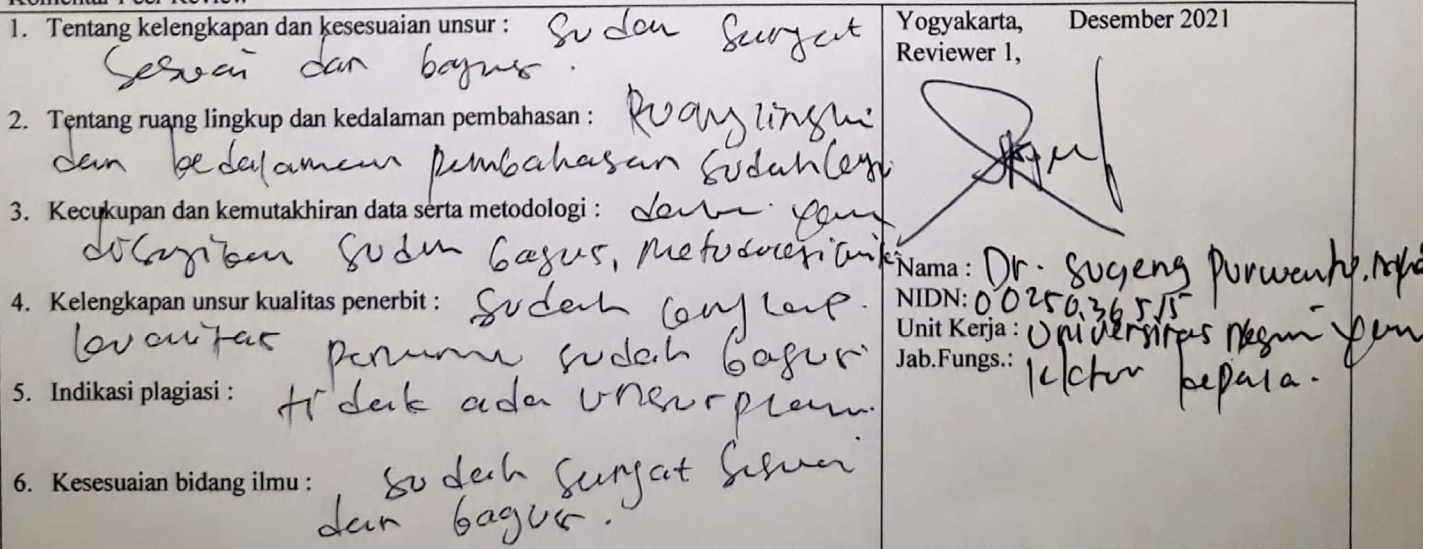 1. Tentang kelengkapan dan kesesuaian unsur : Sudah Sangat
Sesuai dan bagus.
2. Tentang ruang lingkup dan kedalaman pembahasan : Ruang lingkup
dan kedalaman pembahasan sudah
3. Kecukupan dan kemutakhiran data serta metodologi : data yang
disajikan sudah bagus, metodologi
4. Kelengkapan unsur kualitas penerbit : Sudah lengkap.
kualitas sudah bagus
5. Indikasi plagiasi : tidak ada unsur
6. Kesesuaian bidang ilmu : sudah sangat sesuai
dan bagus.
Yogyakarta, Desember 2021
Reviewer 1,
Nama : Dr. Sugeng Purwanto,
NIDN: 0025036515
Unit Kerja : Universitas Negeri
Jab.Fungs.: lektor kepala.